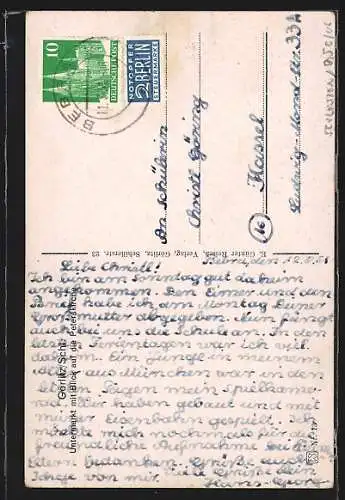 10
DEUTSCHE POST
NOTOPFER
2 BERLIN
STEUERMARKE
BEBRA
An Schülerin
Christl Göring
(16) Kassel
Ludwig-Mond-Str. 33A
E. Günter Reich, Verlag, Görlitz, Schillerstr. 23
Görlitz/Schl.
Untermarkt mit Blick auf die Peterskirche
Bebra, den 12.8.51
Liebe Christl!
Ich bin am Sonntag gut daheim
angekommen. Den Eimer und den
habe ich am Montag Deiner
Großmutter abgegeben. Nun fängt
auch bei uns die Schule an. In den
letzten Ferientagen war ich viel
daheim. Ein Junge in meinem
Alter aus München war in den
letzten Tagen mein Spielkame-
rad. Wir haben gebaut und mit
meiner Eisenbahn gespielt. Ich
möchte mich nochmals für die
freundliche Aufnahme bei
Eltern bedanken. Grüße auch
von mir. Viele Grüße Dein
Hans-Georg